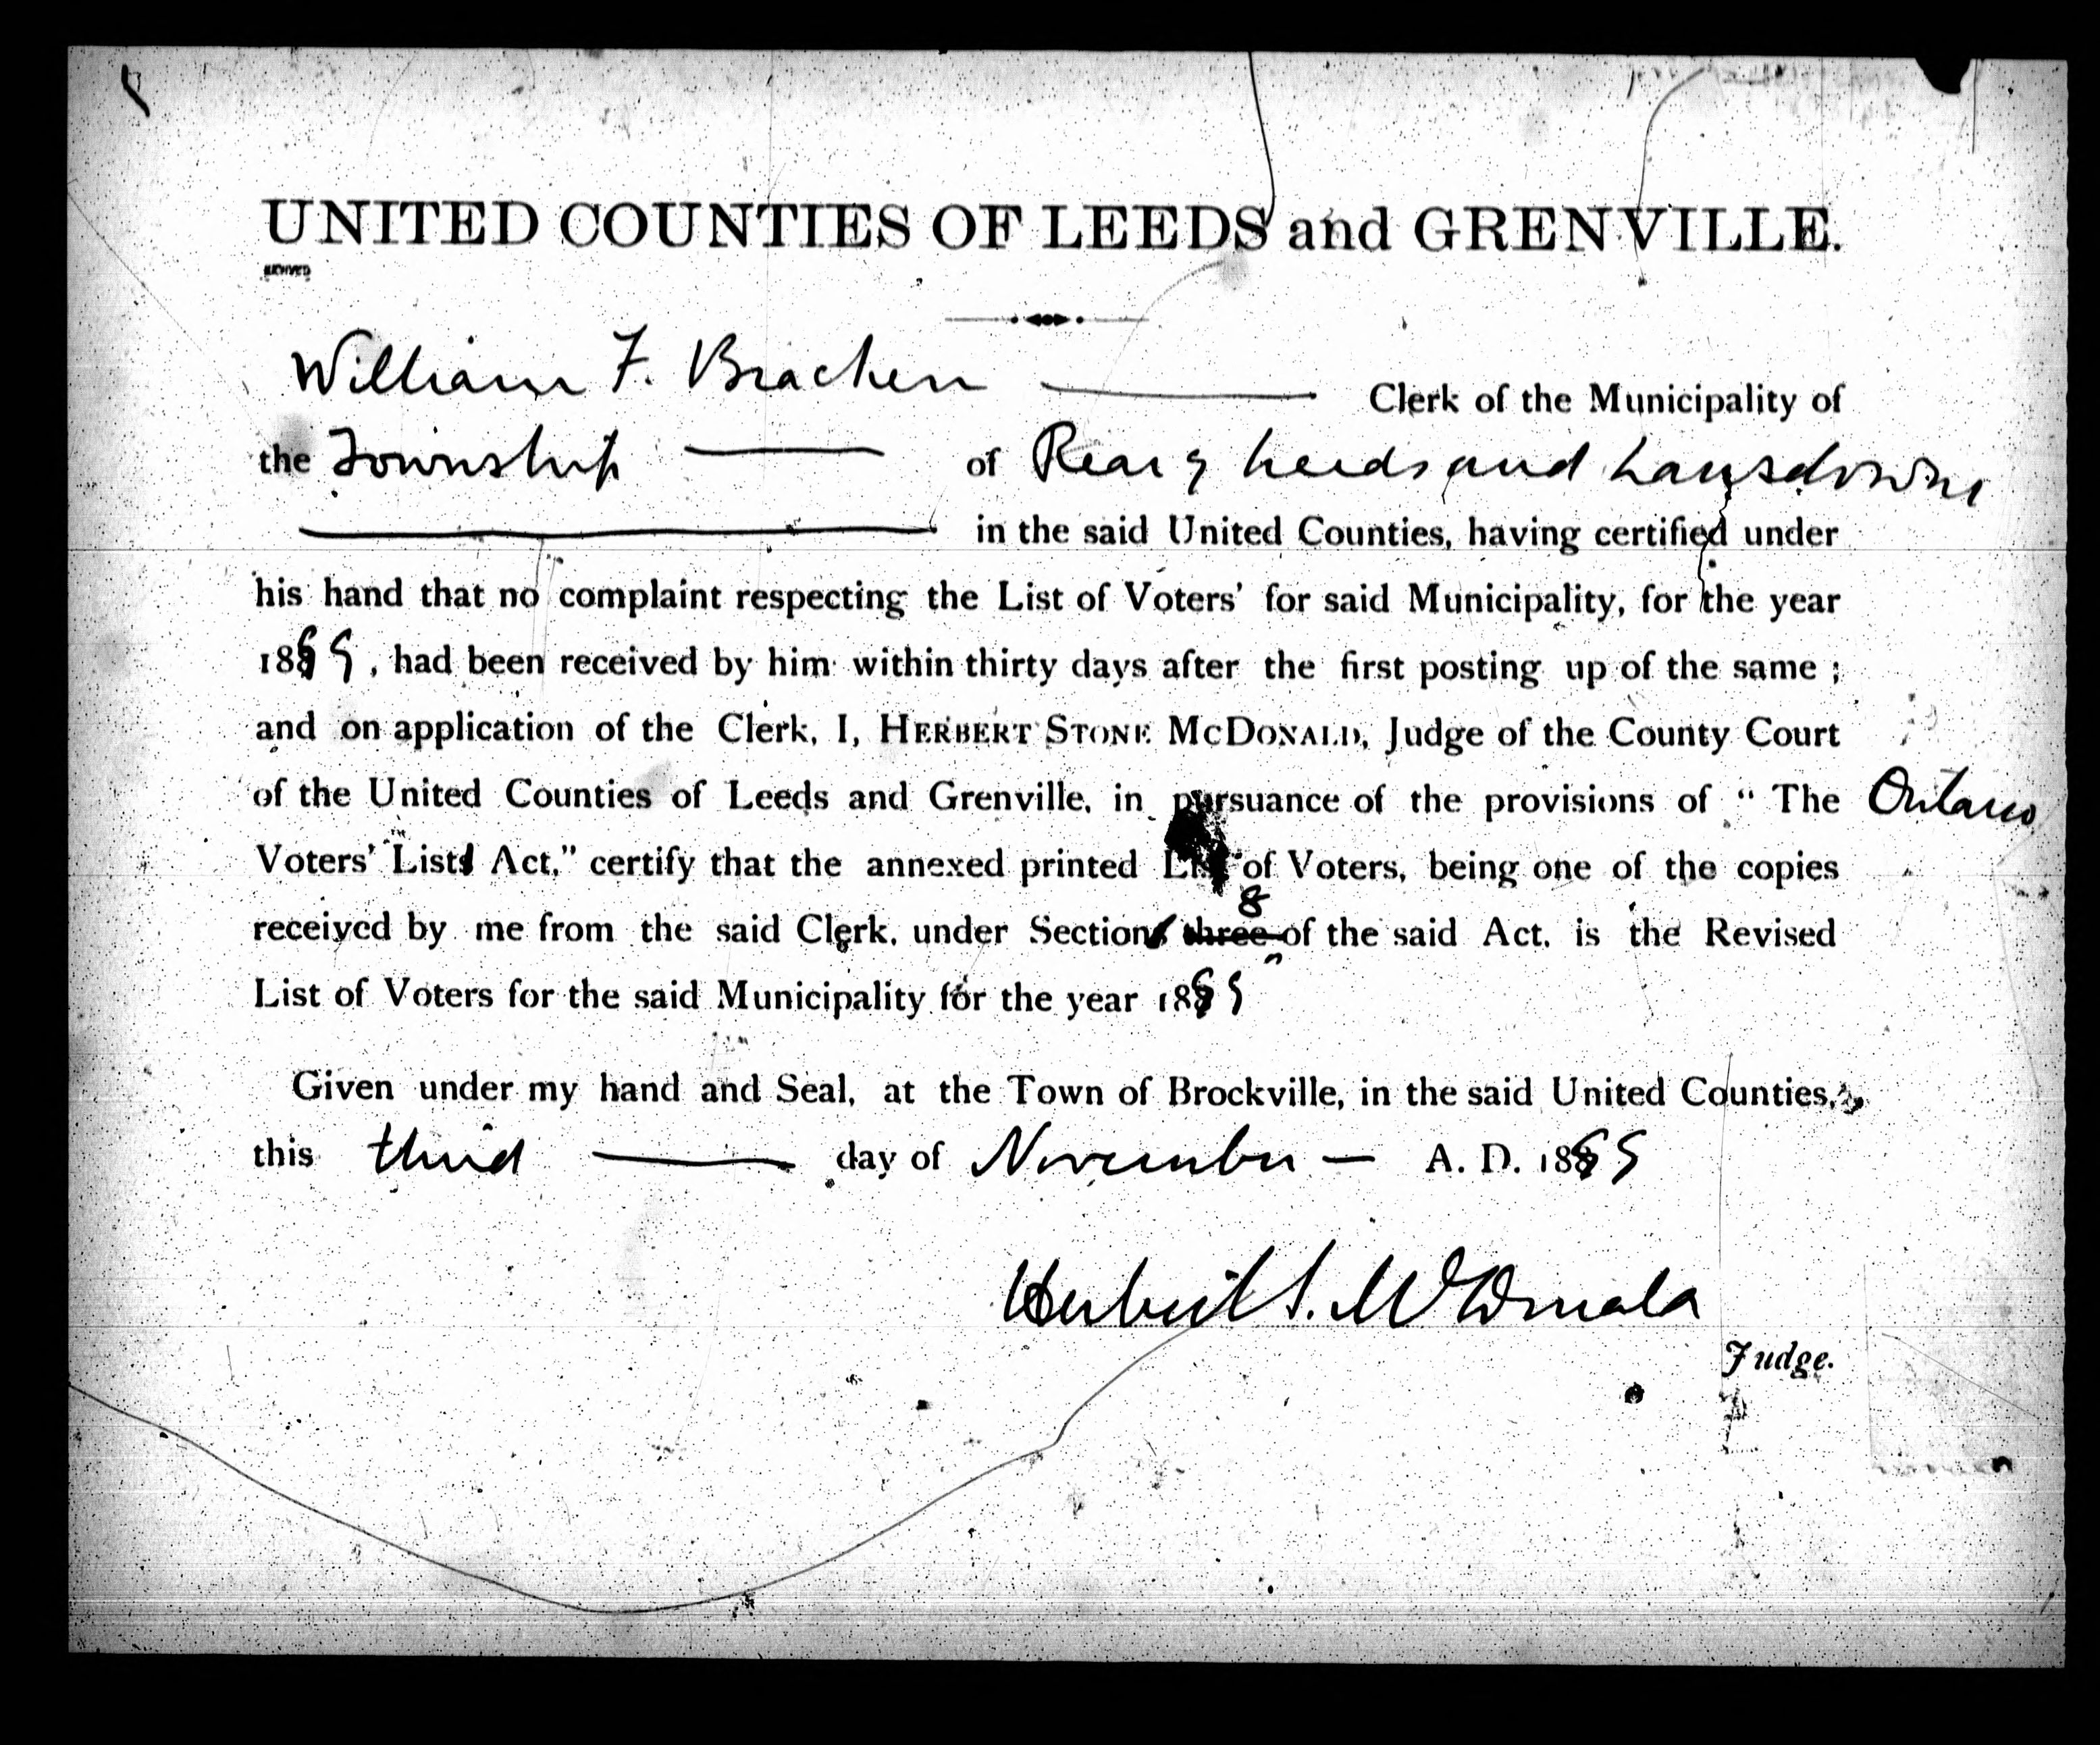 UNITED COUNTIES OF LEEDS and GRENVILLE.
William F. Bracken Clerk of the Municipality of
the Township of Rear of Leeds and Lansdowne
in the said United Counties, having certified under
his hand that no complaint respecting the List of Voters' for said Municipality, for the year
1899, had been received by him within thirty days after the first posting up of the same ;
and on application of the Clerk, I, HERBERT STONE MCDONALD, Judge of the County Court
of the United Counties of Leeds and Grenville, in pursuance of the provisions of “ The Ontario
Voters' List Act,” certify that the annexed printed List of Voters, being one of the copies
received by me from the said Clerk, under Section three 8 of the said Act, is the Revised
List of Voters for the said Municipality for the year 1899
Given under my hand and Seal, at the Town of Brockville, in the said United Counties,
this third day of November — A. D. 1899
Herbert S. McDonald
Judge.